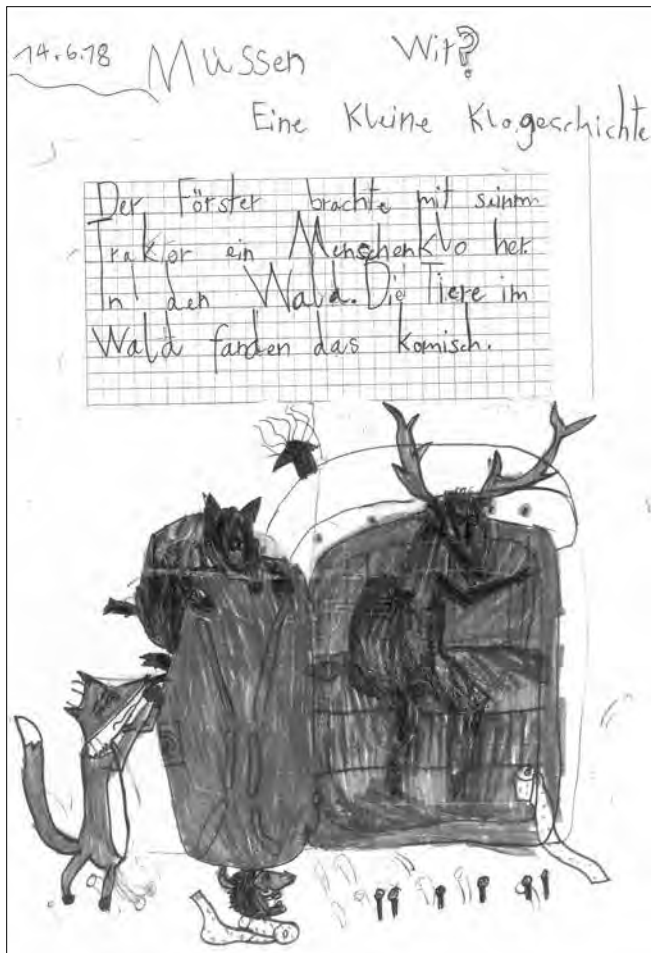 14.6.18 Mussen Wir?
Eine Kleine Klogeschichte
Der Förster brachte mit seinm
Traktor ein Menschenklo her.
In den Wald. Die Tiere im
Wald fanden das komisch.